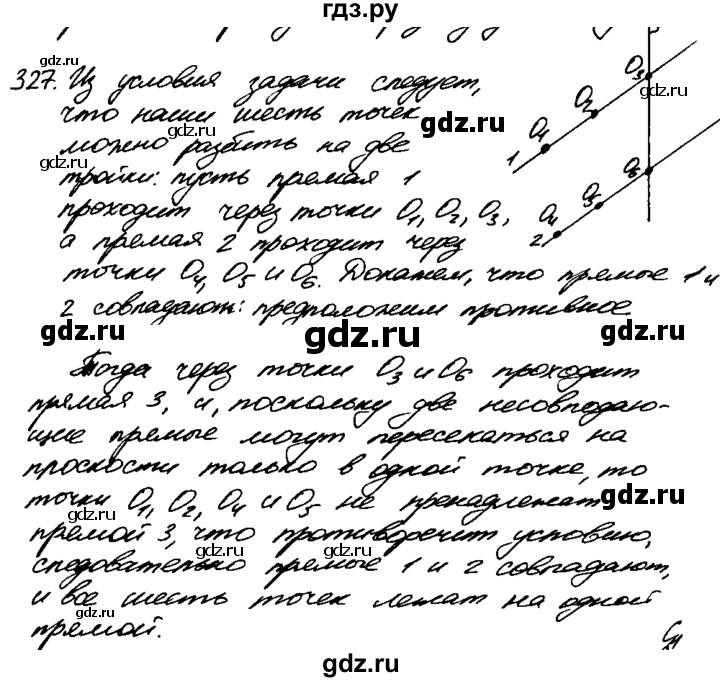 гдз.ру
gdz.ru
327. Из условия задачи следует,
что наши шесть точек
gdz.ru
gdz.ru
можно разбить на две
gdz.ru
тройки: пусть прямая 1
проходит через точки O1, O2, O3,
а прямая 2 проходит через
точки O4, O5 и O6. Докажем, что прямые 1 и
2 совпадают: предположим противное
O1 O2 O3
gdz.ru
1
O4 O5 O6
2
gdz.ru
gdz.ru
gdz.ru
Тогда через точки O3 и O6 проходит
прямая 3, и, поскольку две несовпадаю-
щие прямые могут пересекаться на
плоскости только в одной точке, то
точки O1, O2, O4 и O5 не принадлежат
gdz.ru
gdz.ru
gdz.ru
прямой 3, что противоречит условию,
gdz.ru
gdz.ru
gdz.ru
следовательно прямые 1 и 2 совпадают,
и все шесть точек лежат на одной
прямой.
gdz.ru